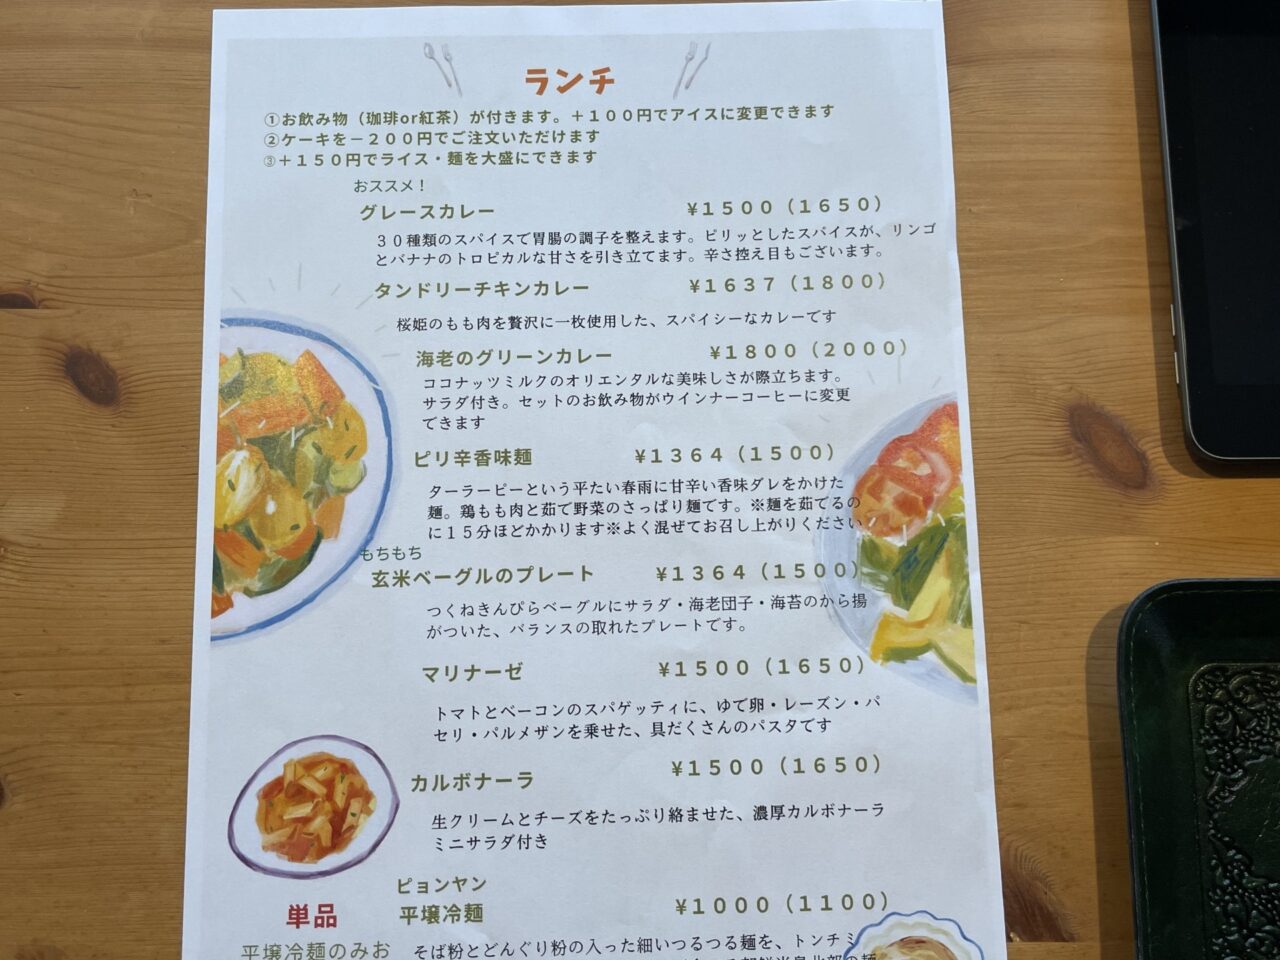 ランチ
①お飲み物（珈琲or紅茶）が付きます。＋１００円でアイスに変更できます
②ケーキを－２００円でご注文いただけます
③＋１５０円でライス・麺を大盛にできます
おススメ！
グレースカレー ¥１５００（１６５０）
３０種類のスパイスで胃腸の調子を整えます。ピリッとしたスパイスが、リンゴ
とバナナのトロピカルな甘さを引き立てます。辛さ控え目もございます。
タンドリーチキンカレー ¥１６３７（１８００）
桜姫のもも肉を贅沢に一枚使用した、スパイシーなカレーです
海老のグリーンカレー ¥１８００（２０００）
ココナッツミルクのオリエンタルな美味しさが際立ちます。
サラダ付き。セットのお飲み物がウインナーコーヒーに変更
できます
ピリ辛香味麺 ¥１３６４（１５００）
ターラーピーという平たい春雨に甘辛い香味ダレをかけた
麺。鶏もも肉と茹で野菜のさっぱり麺です。※麺を茹でるの
に１５分ほどかかります※よく混ぜてお召し上がりください
もちもち
玄米ベーグルのプレート ¥１３６４（１５００）
つくねきんぴらベーグルにサラダ・海老団子・海苔のから揚
がついた、バランスの取れたプレートです。
マリナーゼ ¥１５００（１６５０）
トマトとベーコンのスパゲッティに、ゆで卵・レーズン・パ
セリ・パルメザンを乗せた、具だくさんのパスタです
カルボナーラ ¥１５００（１６５０）
生クリームとチーズをたっぷり絡ませた、濃厚カルボナーラ
ミニサラダ付き
ピョンヤン
単品 平壌冷麺 ¥１０００（１１００）
平壌冷麺のみお
そば粉とどんぐり粉の入った細いつるつる麺を、トンチミ